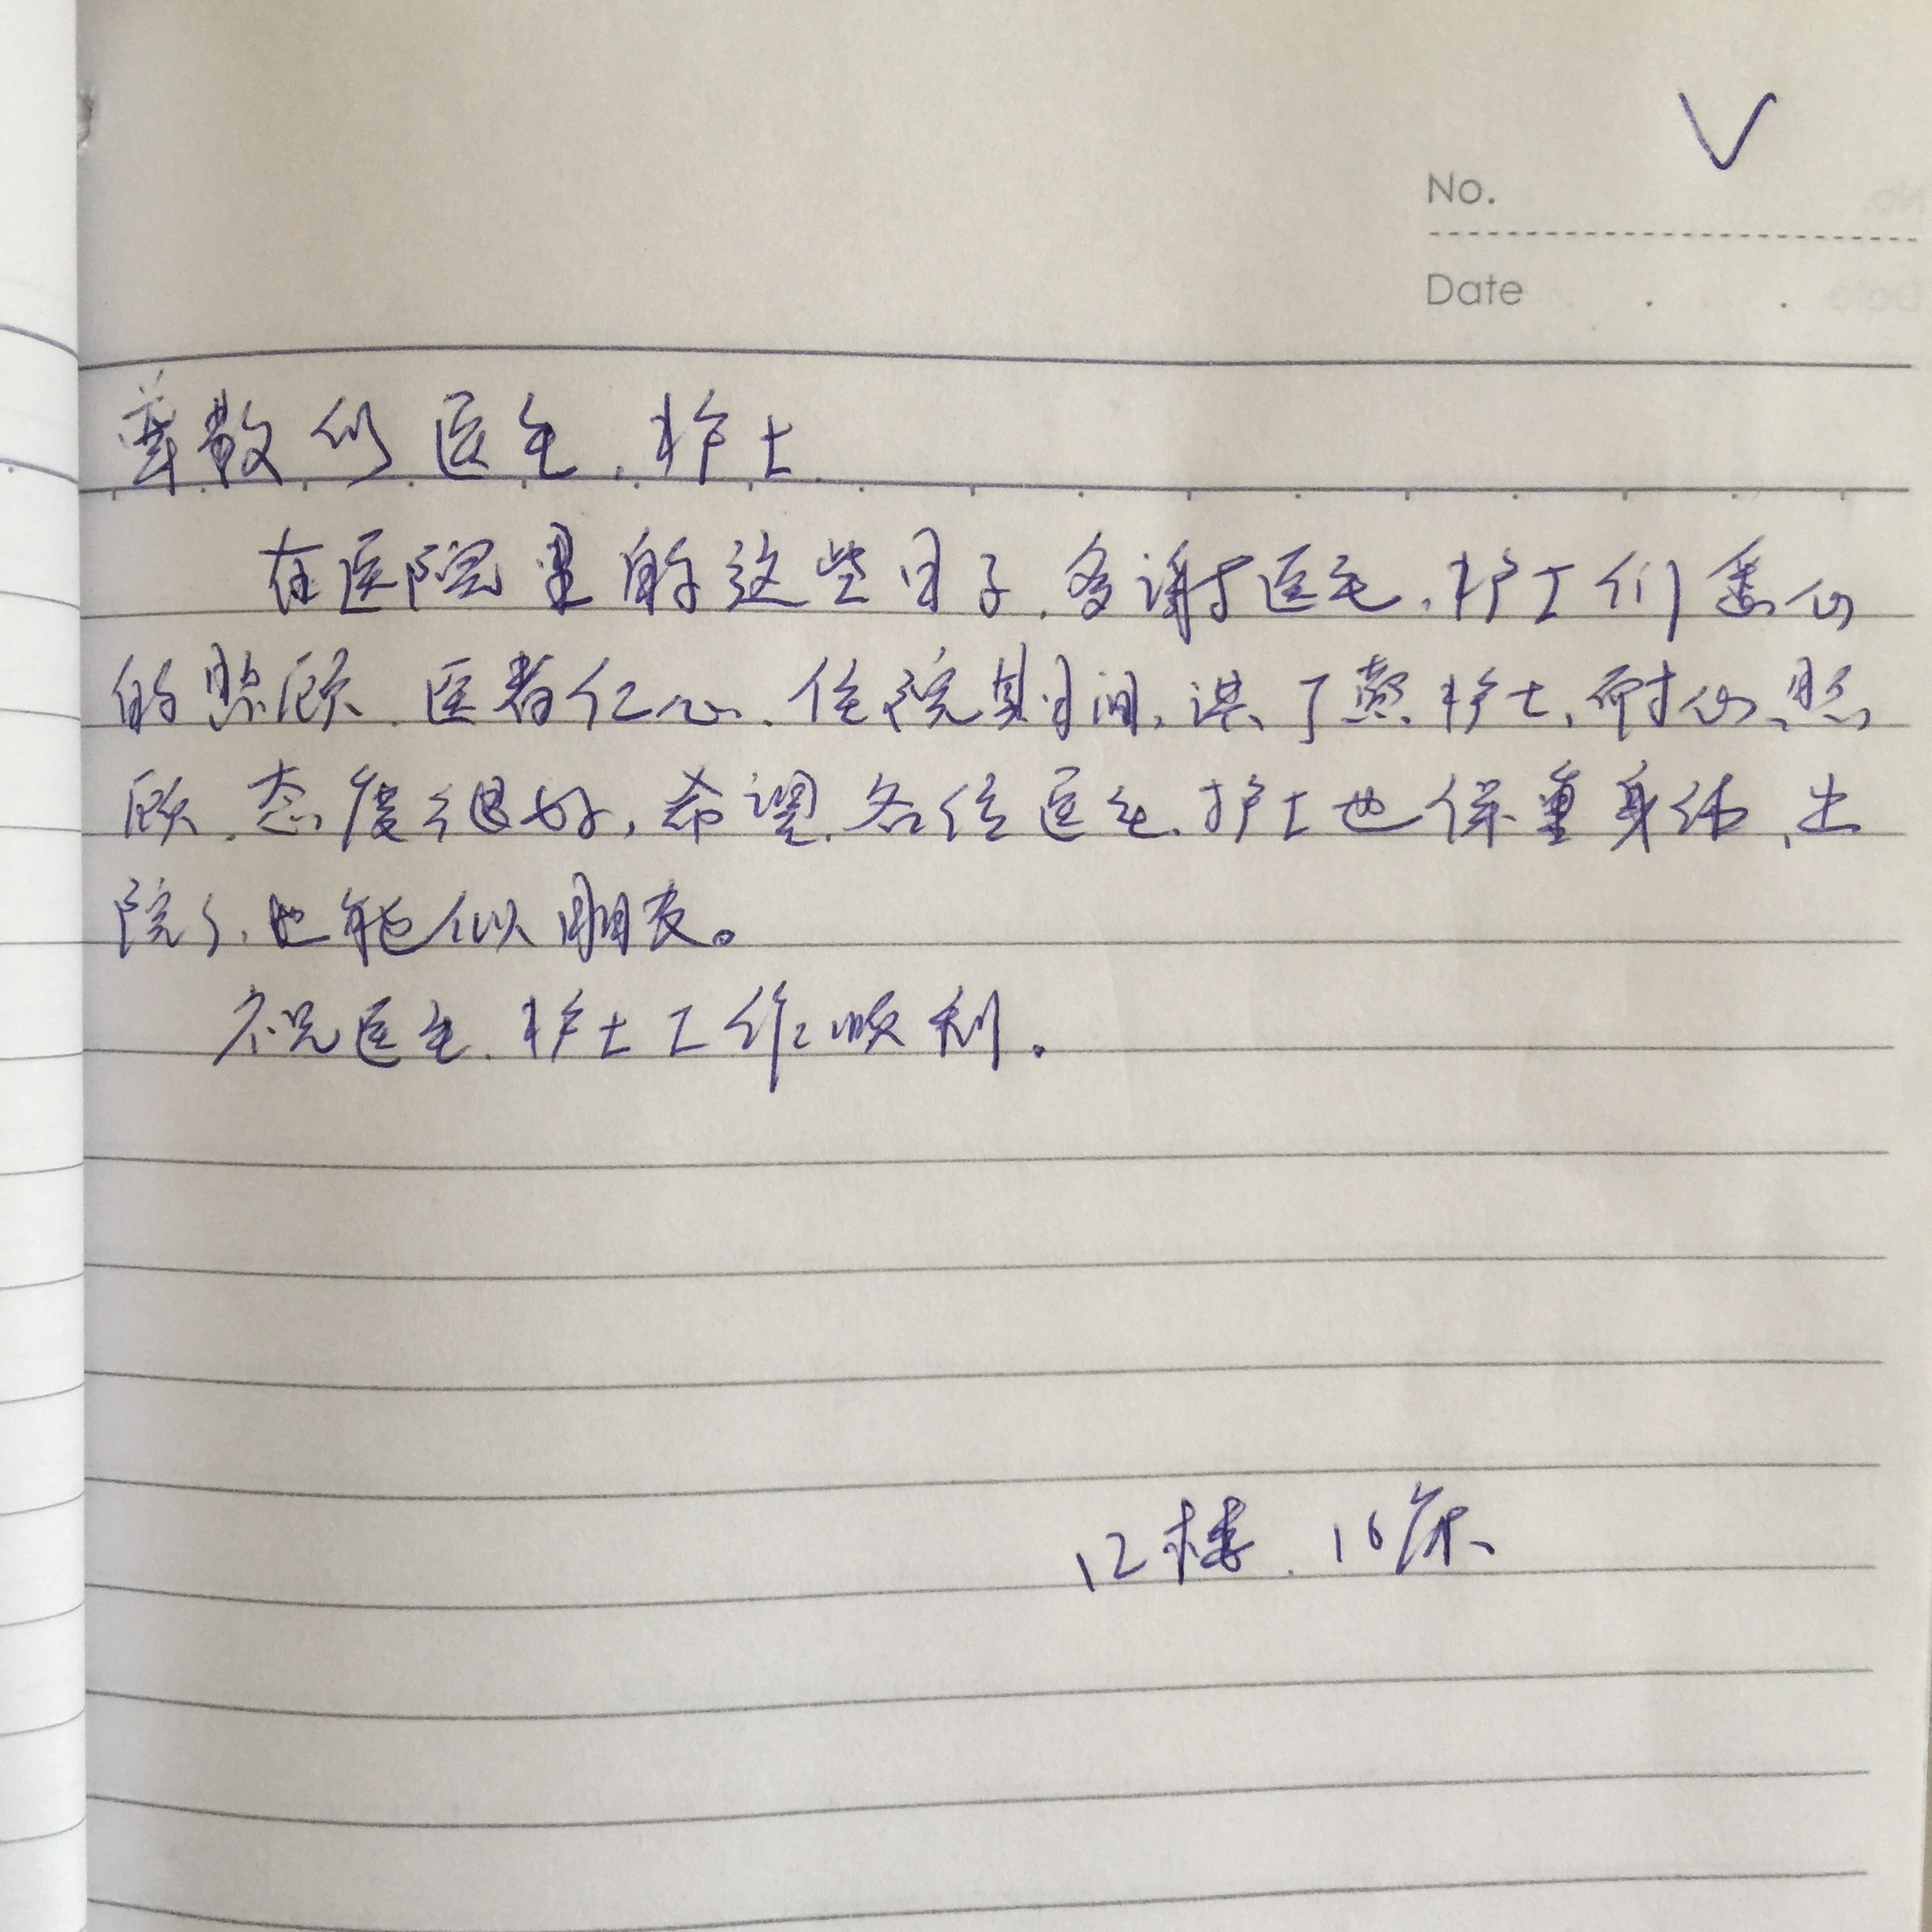 No.
Date
尊敬的医生、护士
在医院里的这些日子,多谢医生、护士们悉心
的照顾、医者仁心、住院期间,淇了黄护士,耐心、照
顾、态度很好,希望各位医生、护士也保重身体、出
院了、也能似朋友。
祝医生、护士工作顺利。
12楼、16床